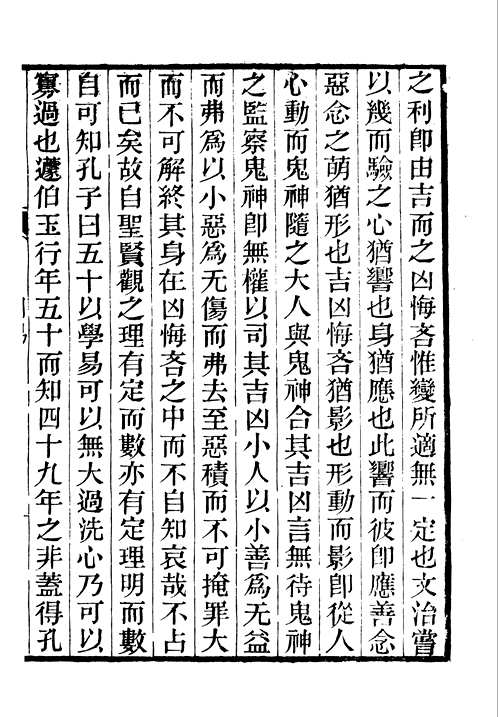 之利卽由吉而之凶悔吝惟變所適無一定也文治嘗
以幾而驗之心猶響也身猶應也此響而彼卽應善念
惡念之萌猶形也吉凶悔吝猶影也形動而影卽從人
心動而鬼神隨之大人與鬼神合其吉凶言無待鬼神
之監察鬼神卽無權以司其吉凶小人以小善爲无益
而弗爲以小惡爲无傷而弗去至惡積而不可掩罪大
而不可解終其身在凶悔吝之中而不自知哀哉不占
而已矣故自聖賢觀之理有定而數亦有定理明而數
自可知孔子曰五十以學易可以無大過洗心乃可以
寡過也蘧伯玉行年五十而知四十九年之非蓋得孔